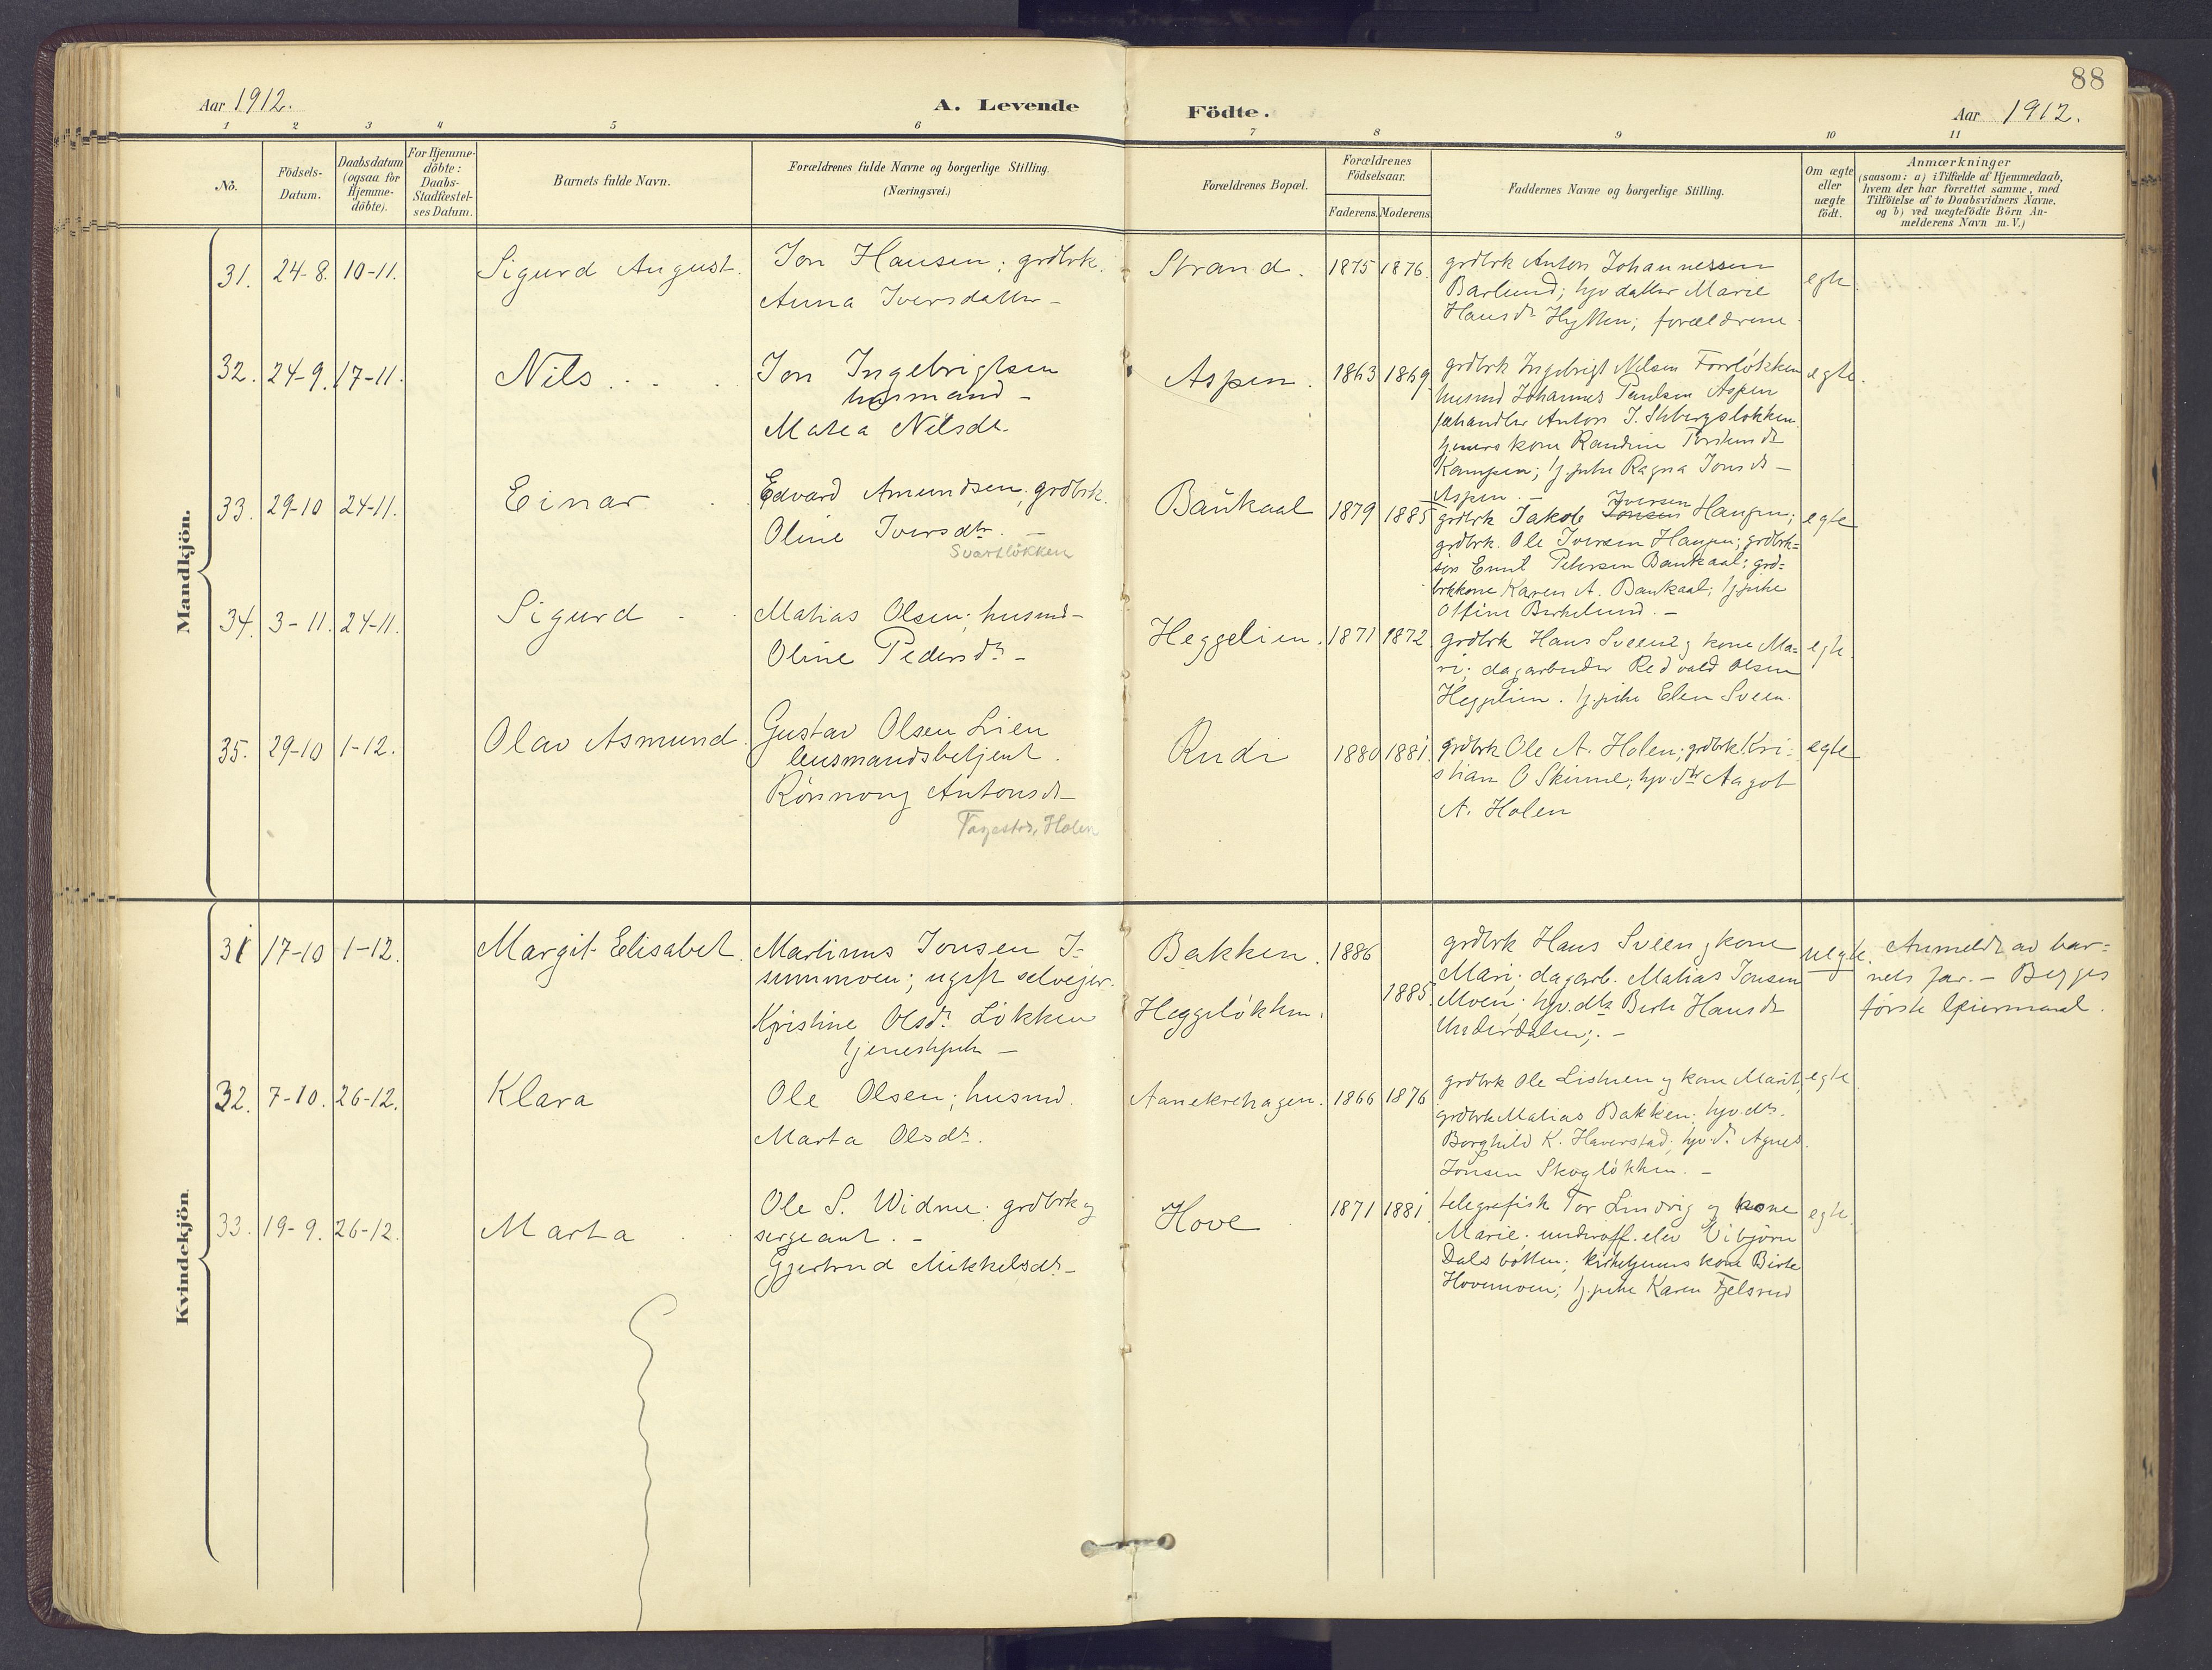 88
Aar 1912. A. Levende Födte. Aar 1912.
1 2 3 4 5 6 7 8 9 10 11
No.
Födsels-
Datum.
Daabsdatum
(ogsaa for
Hjemme-
döbte).
For Hjemme-
döbte:
Daabs-
Stadfæstel-
ses Datum.
Barnets fulde Navn.
Forældrenes fulde Navne og borgerlige Stilling.
(Næringsvei.)
Forældrenes Bopæl.
Forældrenes
Födselsaar.
Faderens. Moderens.
Faddernes Navne og borgerlige Stilling.
Om ægte
eller
uægte
födt.
Anmærkninger
(saasom: a) i Tilfælde af Hjemmedaab,
hvem der har forrettet samme, med
Tilföielse af to Daabsvidners Navne.
og b) ved uægtefödte Börn An-
melderens Navn m. V.)
Mandkjön.
31. 24-8. 10-11. Sigurd August.
Jon Hansen; grdbrk.
Anna Iversdatter -
Strand. 1875 1876.
grdbrk Anton Johannessen
Barlund; hjv datter Marie
Hansdr Hytten; forældrene
egte
32. 24-9. 17-11. Nils
Jon Ingebrigtsen
husmand -
Matea Nilsdr.
Aspen. 1863 1869
grdbrk Ingebrigt Nilsen
husmd Johannes Paulsen Aspen
Anton J.
kone Randine
Kampen; tj.pike Ragna Jonsdr -
Aspen. -
egte.
33. 29-10 24-11. Einar
Edvard Amundsen, grdbrk.
Oline Iversdtr. -
Svartlökken
Baukaal 1879 1885
Iversen
grdbrk Jakob Jonsen Haugen;
grdbrk. Ole Iversen Haugen; grdbrk=
sön Emil Petersen Baukaal; grd=
brkkone Karen A. Baukaal; tj.pike
Birkelund. -
egte
34. 3-11. 24-11. Sigurd
Matias Olsen; husmd -
Oline Pedersdr -
Heggelien. 1871 1872
grdbrk Hans Sveen og kone Ma=
ri; dagarbeider Redvald Olsen
Heggelien. tj.pike Elen Sveen.
egte.
35. 29-10 1-12. Olav Asmund.
Gustav Olsen Lien
lensmandsbetjent.
Rönnoug Antonsdr -
Holen
Rudi 1880 1881.
grdbrk Ole A. Holen; grdbrk Kri-
stian O Skinne; hjv. dtr Aagot
A. Holen
egte
Kvindekjön.
31 17-10 1-12. Margit Elisabet.
Martinus Jonsen I-
sumoen; ugift selveier.
Kristine Olsdr. Lökken
tjenestepike -
Bakken. 1886
Heggelökken. 1885.
grdbrk Hans Sveen og kone
Mari; dagarb. Matias Jonsen
Moen; hjv.dtr Berte Hansdr
Underdalen; -
uegte.
Anmeldt av bar=
nets far. - Begges
förste leiermaal.
32. 7-10. 26-12. Klara
Ole Olsen; husmd.
Marta Olsdr.
Aanekrehagen. 1866 1876
grdbrk Ole Listuen og kone Marit,
grdbrk Matias Bakken; hjv.dtr.
Borghild K. Haverstad; hjv.dr Agnes
Jonsen Skoglökken. -
egte
33. 19-9. 26-12. Marta
Ole S. Widme; grdbrk og
sergeant. -
Gjertrud Mikkelsdr -
Hove 1871 1881.
telegrafist Tor Lindvig og kone
Marie; underoff. elev Vibjörn
Dalsbötten; kirketjeners kone Birte
Hovemoen; tj.pike Karen Fjelsrud
egte.